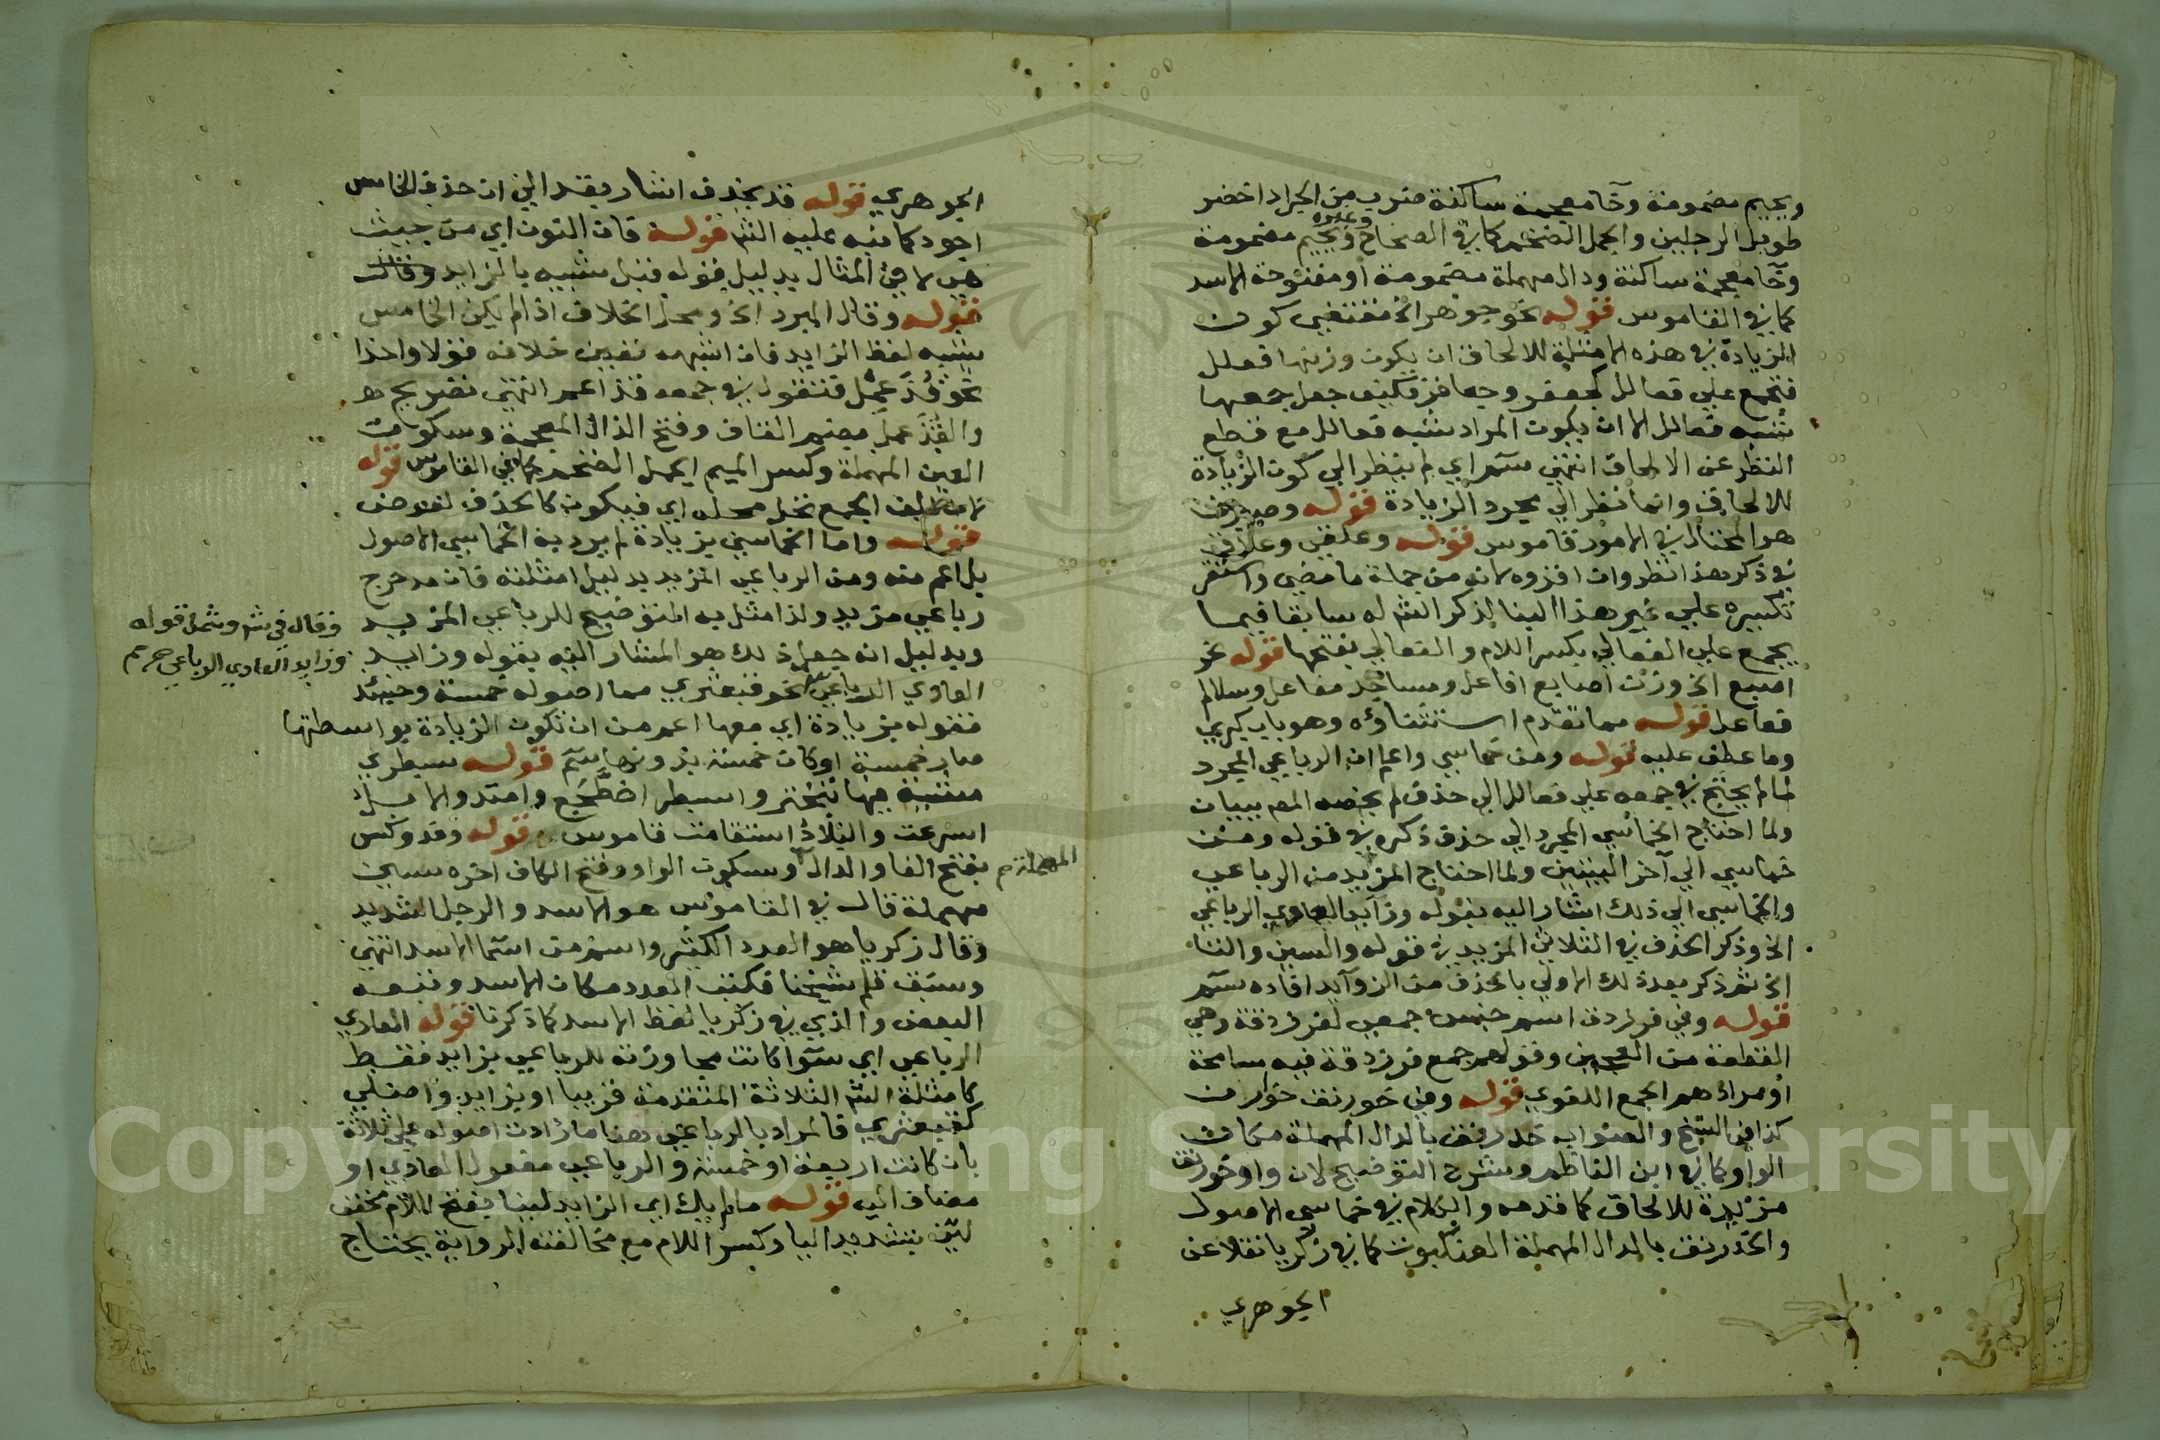 وبجيم مضمومة وخآ معجمة ساكنة ضرب من الجراد اخضر
طويل الرجلين والجمل الضخم كما في الصحاح وغيره وبجيم مضمومة
وخآ معجمة ساكنة ودال مهملة مضمومة او مفتوحة الاسد
كما في القاموس قوله نحو جوهر الخ مقتضى كون
الزيادة في هذه الامثلة للالحاق ان يكون وزنها فعلل
فتجمع على فعالل كجعفر وجعافر فكيف جعل جمعها
شبه فعالل الا ان يكون المراد شبه فعالل مع قطع
النظر عن الالحاق انتهى سم اي لم ينظر الى كون الزيادة
للالحاق وانما نظر الى مجرد الزيادة قوله وصيرف
هو المحتال في الامور قاموس قوله وعلقى وعلاقى
في ذكر هذا نظر وان اقروه لانه من جملة ما مضى واستقر
تكسيره على غير هذا البنا لذكر الش له سابقا فيما
يجمع على الفعالي بكسر اللام والفعالى بفتحها قوله نحو
اصبع الخ وزن اصابع افاعل ومساجد مفاعل وسلالم
فعاعل قوله مما تقدم استثناؤه وهو باب كبرى
وما عطف عليه قوله ومن خماسي واعلم ان الرباعي المجرد
لما لم يحتج في جمعه على فعالل الى حذف لم يخصه المص ببيان
ولما احتاج الخماسي المجرد الى حذف ذكره في قوله ومن
خماسي الى آخر البيتين ولما احتاج المزيد من الرباعي
والخماسي الى ذلك اشار اليه بقوله وزايد العادي الرباعي
الخ وذكر الحذف في الثلاثي المزيد في قوله والسين والتا
الخ ثم ذكر بعد ذلك الاولى بالحذف من الزوآيد افاده سم
قوله وفي فرزدق اسم جنس جمعي لفرزدقة وهي
القطعة من العجين وقولهم جمع فرزدقة فيه مسامحة
او مرادهم الجمع اللغوي قوله وفي خورنق خوارن
كذا في النسخ والصواب خدرنق بالدال المهملة مكان
الواو كما في ابن الناظم وشرح التوضيح لان واو خورنق
مزيدة للالحاق كما قدمه والكلام في خماسي الاصول
والخدرنق بالدال المهملة العنكبوت كما في زكريا نقلا عن
الجوهري
الجوهري قوله قد يحذف اشار بقد الى ان حذف الخامس
اجود كما نبه عليه الش قوله فان النون اي من حيث
هي لا في المثال بدليل قوله قبل شبيه بالزايد وقال
قوله وقال المبرد الخ ومحل الخلاف اذا لم يكن الخامس
شبيه لفظ الزايد فان اشبهه تعين حذفه قولا واحدا
نحو قذعمل فتقول في جمعه قذاعم انتهى تصريح
والقذعمل بضم القاف وفتح الذال المعجمة وسكون
العين المهملة وكسر الميم الجمل الضخم كما في القاموس قوله
الجمع تختل محله اي فيكون كالحذف لغير
قوله واما الخماسي بزيادة لم يرد به الخماسي الاصول
بل اعم منه ومن الرباعي المزيد بدليل امثلته فان مدحرج
رباعي مزيد ولذا مثل به الموضح للرباعي المزيد
وبدليل انه جعل ذلك هو المشار اليه بقوله وزايد
العادي الرباعي نحو قبعثرى مما اصوله خمسة وحينئذ
فقوله بزيادة اي معها اعم من ان تكون الزيادة بواسطتها
صار خمسة او كان خمسة بدونها سم قوله سبطرى
مشية فيها تبختر واسبطر اضطجع وامتد والابل
اسرعت والبلاد استقامت قاموس قوله فدوكس
بفتح الفا والدال وسكون الواو وفتح الكاف اخره سين
المهملة م
مهملة قال في القاموس هو الاسد والرجل الشديد
وقال زكريا هو العدد الكثير واسم من اسما الاسد انتهى
وسبق قلم شيخنا فكتب العدد مكان الاسد وتبعه
البعض والذي في زكريا لفظ الاسد كما ذكرنا قوله العادي
الرباعي اي سوآ كانت مجاوزته للرباعي بزايد فقط
كامثلة الش الثلاثة المتقدمة قريبا او بزايد واصلي
كقبعثرى فالمراد بالرباعي هنا ما زادت اصوله على ثلاثة
بان كانت اربعة او خمسة والرباعي مفعول العادي او
مضاف اليه قوله ما لم يك اي الزايد لينا بفتح اللام مخفف
لين بتشديد اليا وكسر اللام مع مخالفته الرواية يحتاج
وقال في ش وشمل قوله
وزايد العادي الرباعي